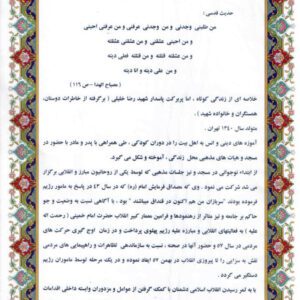 حدیث قدسی :
من طلبنی وجدنی و من وجدنی عرفنی و من عرفنی احبنی
و من احبنی عشقنی و من عشقنی عشقته
و من عشقته قتلته و من قتلته فعلی دیته
و من علی دیته و انا دیته
(مصباح الهدا – ص ۱۱۶)
خلاصه ای از زندگی کوتاه ، اما پربرکت پاسدار شهید رضا خلیلی ( برگرفته از خاطرات دوستان،
همسنگران و خانواده شهید )
متولد سال ۱۳۴۰ تهران .
آموزه های دینی و انس به اهل بیت را در دوران کودکی ، طی همراهی با پدر و مادر با حضور در
مسجد و حیات های مذهبی محل زندگی ، آموخته و شکل می گیرد.
از ابتداء نوجوانی در مسجد و نیز جلسات مذهبی که توسط یکی از روحانیون مبارز و انقلابی برگزار
می شد شرکت می نمود. وی که مصداق فرمایش امام (ره) که در سال ۴۲ در پاسخ به مامور رژیم
فرموده بودند: «سربازان من هم اکنون در قنداق میباشند » بود ، با آگاهی نسبت به وضعیت و جو
حاکم بر جامعه و نیز متاثر از رهنمودها و فرامین معمار کبیر انقلاب حضرت امام خمینی ( رحمت اله
علیه ) به فعالیتهای انقلابی و مبارزه علیه رژیم پهلوی پرداخت و در زمان اوج گیری حرکت های
مردمی در سال ۵۷ و حضور آنها در صحنه ، نسبت به سازماندهی تظاهرات و راهپیمایی های مردمی
نقش به سزایی را تا پیروزی انقلاب در بهمن ۵۷ ایفاد نموده و در یک مرحله توسط ماموران رژیم
دستگیر می گردد .
با به ثمر رسیدن انقلاب اسلامی دشمنان با کمک گرفتن از عوامل و مزدوران وابسته داخلی اقدامات